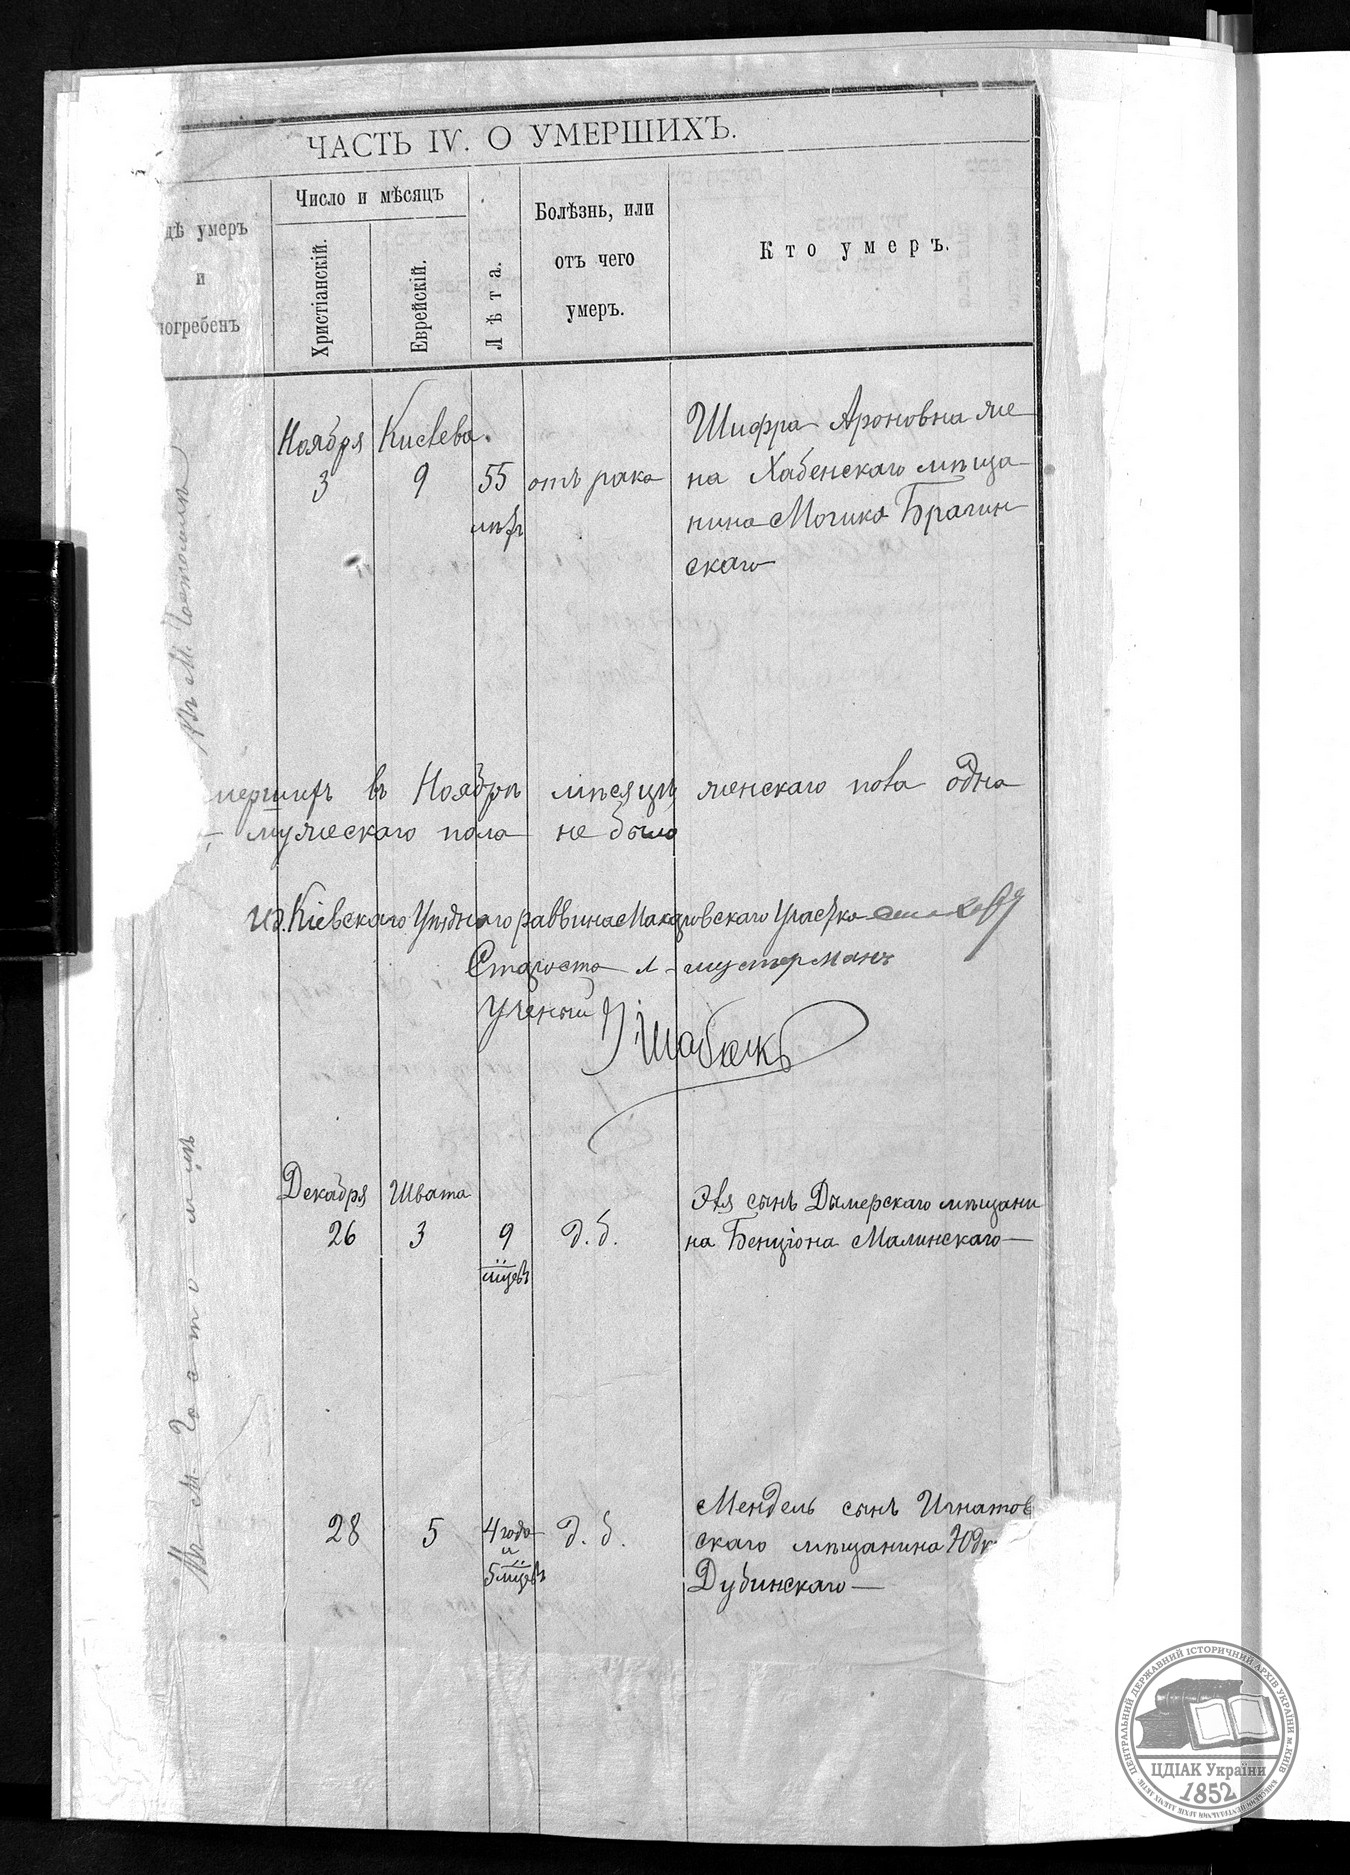 ЧАСТЬ IV. О УМЕРШИХЪ.
дѣ умеръ
и
погребенъ
Число и мѣсяцъ
Христіанскій.
Еврейскій.
Лѣта.
Болѣзнь, или
отъ чего
умеръ.
Кто умеръ.
Въ М. Гостомлѣ
Ноября
3
Кислева
9
55
лѣтъ
отъ рака
Шифра Ароновна же
на Хабенскаго мѣща
нина Мошка Брагин
скаго
мершихъ въ Ноябрѣ мѣсяцѣ женскаго пола одна
мужескаго пола не было
И.д. Кіевскаго Уѣзднаго раввина Макаровскаго Участка
Староста
Ученый
Въ М. Гостомлѣ
Декабря
26
Швата
3
9
мцевъ
д. б.
сынъ Дымерскаго мѣщани
на Бенціона Малинскаго
28
5
4 года
и
5 мцевъ
д. б.
Мендель сынъ Игнатов
скаго мѣщанина Юдк
Дубинскаго
ЦЕНТРАЛЬНИЙ ДЕРЖАВНИЙ ІСТОРИЧНИЙ АРХІВ УКРАЇНИ м. КИЇВ
ЦДІАК України
1852